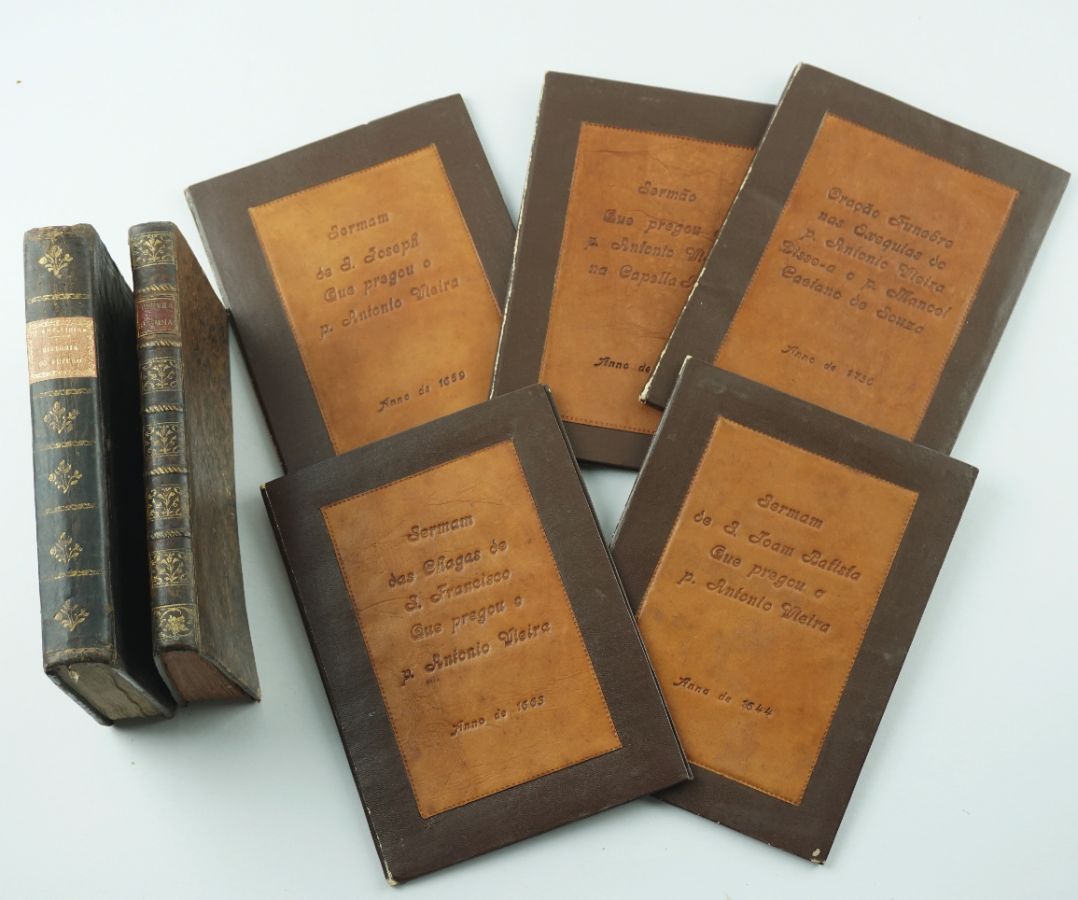 HISTORIA
DO FUTURO
Sermam
de S. Joseph
Que pregou o
p. Antonio Vieira
Anno de 1659
Sermão
Que pregou o
p. Antonio
na Capella
Anno de
Oração Funebre
nas Exequias do
p. Antonio Vieira
Disse-a o p. Manoel
Caetano de Souza
Anno de 1730
Sermam
das Chagas de
S. Francisco
Que pregou o
p. Antonio Vieira
Anno de 1663
Sermam
de S. Joam Batista
Que pregou o
p. Antonio Vieira
Anno de 1644